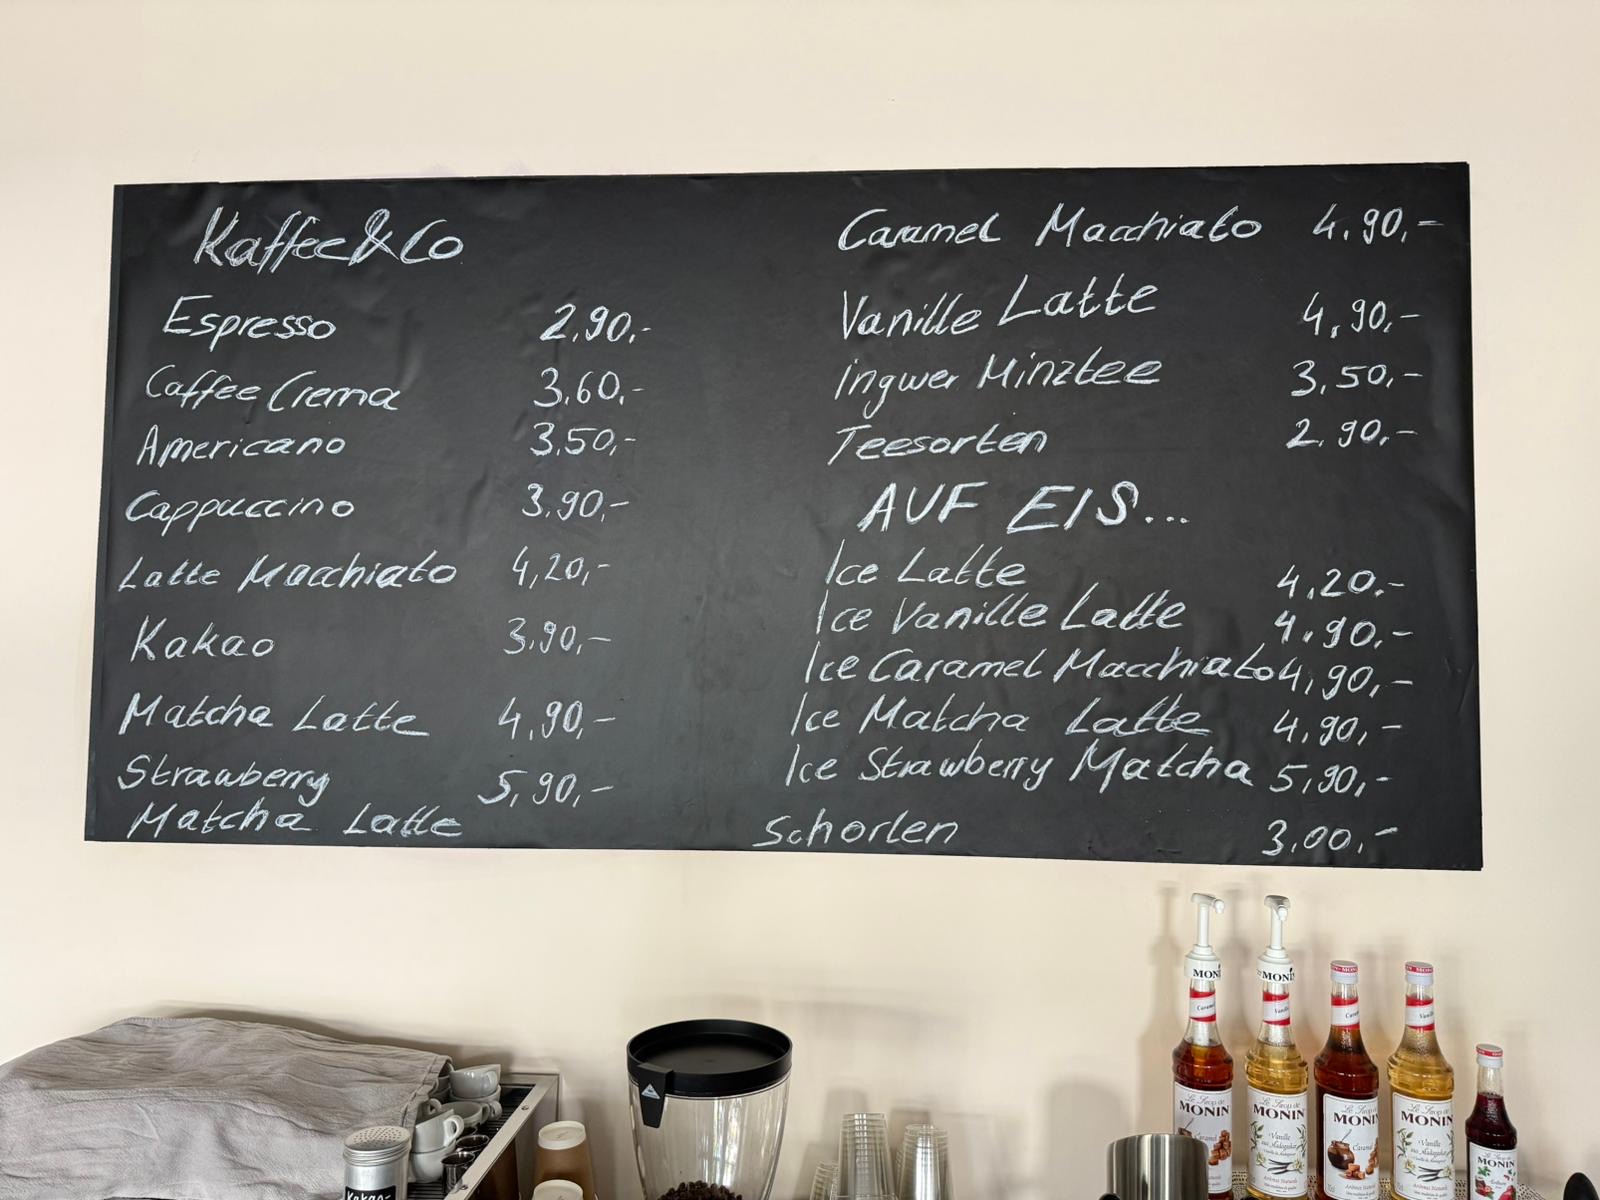 Kaffee&Co
Espresso 2,90,-
Caffee Crema 3,60,-
Americano 3,50,-
Cappuccino 3,90,-
Latte Macchiato 4,20,-
Kakao 3,90,-
Matcha Latte 4,90,-
Strawberry 5,90,-
Matcha Latte
Caramel Macchiato 4,90,-
Vanille Latte 4,90,-
Ingwer Minztee 3,50,-
Teesorten 2,90,-
AUF EIS...
Ice Latte 4,20,-
Ice Vanille Latte 4,90,-
Ice Caramel Macchiato 4,90,-
Ice Matcha Latte 4,90,-
Ice Strawberry Matcha 5,90,-
Schorlen 3,00,-
MONIN
Le Sirop de
MONIN
Caramel
Le Sirop de
MONIN
Vanille
Le Sirop de
MONIN
Caramel
Le Sirop de
MONIN
Vanille
MONIN
Kakao-